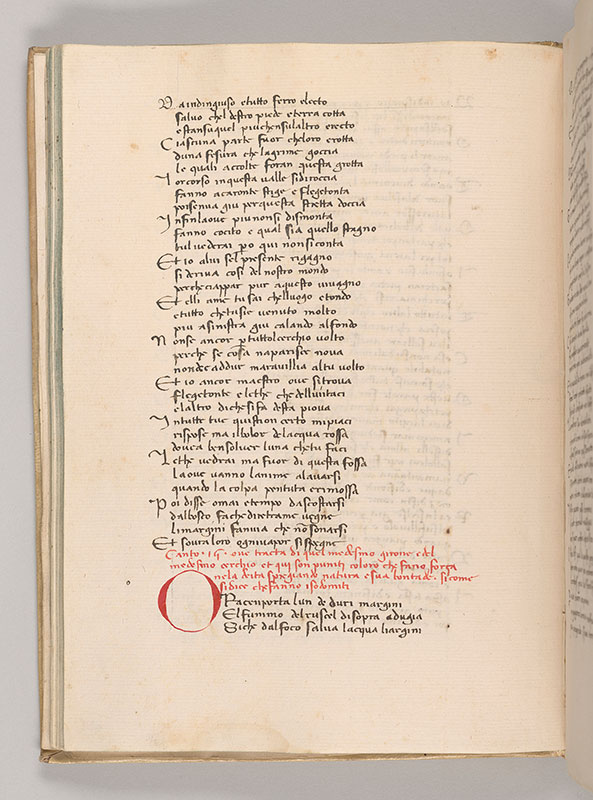 Da indi ingiuso e tutto ferro electo
salvo chel destro piede e terra cotta
e sta n su quel piu chen sulaltro erecto
Ciascuna parte fuor che loro e rotta
duna fessura che lagrime goccia
le quali accolte foran questa grotta
lor corso in questa valle si diroccia
fanno acaronte stige e flegetonta
poi sen va giu per questa stretta doccia
Infin la ove piu non si dismonta
fanno cocito e qual sia quello stagno
tu l vederai pero qui non si conta
Et io a lui sel presente rigagno
si deriva cosi del nostro mondo
perche ci appar pur a questo vivagno
Et elli a me tu sai chelluogo e tondo
e tutto che tu sie venuto molto
piu a sinistra giu calando al fondo
Non se ancor per tuttol cerchio volto
perche se cosa naparisce nova
non de addur maravillia al tu volto
Et io ancor maestro ove si trova
flegetonte e lethe che dellun taci
e laltro di che si fa desta piova
In tutte tue quistion certo mi piaci
rispose ma il bolor de lacqua rossa
dovea ben solver luna che tu faci
Lethe vedrai ma fuor di questa fossa
la ove vanno lanime a lavarsi
quando la colpa pentuta e rimossa
Poi disse omai e tempo da scostarsi
dal bosco fa che diretr a me vegne
li margini fan via che non son arsi
Et sovra loro ogni vapor si spegne
Canto .15. ove tracta di quel medesimo girone e del
medesimo cerchio et qui son puniti coloro che fano forza
ne la deita spregiando natura e sua bontade. si come
si dice che fanno i sodomiti
ORa cen porta lun de duri margini
El fummo del ruscel di sopra adugia
Siche dal foco salva lacqua liargini